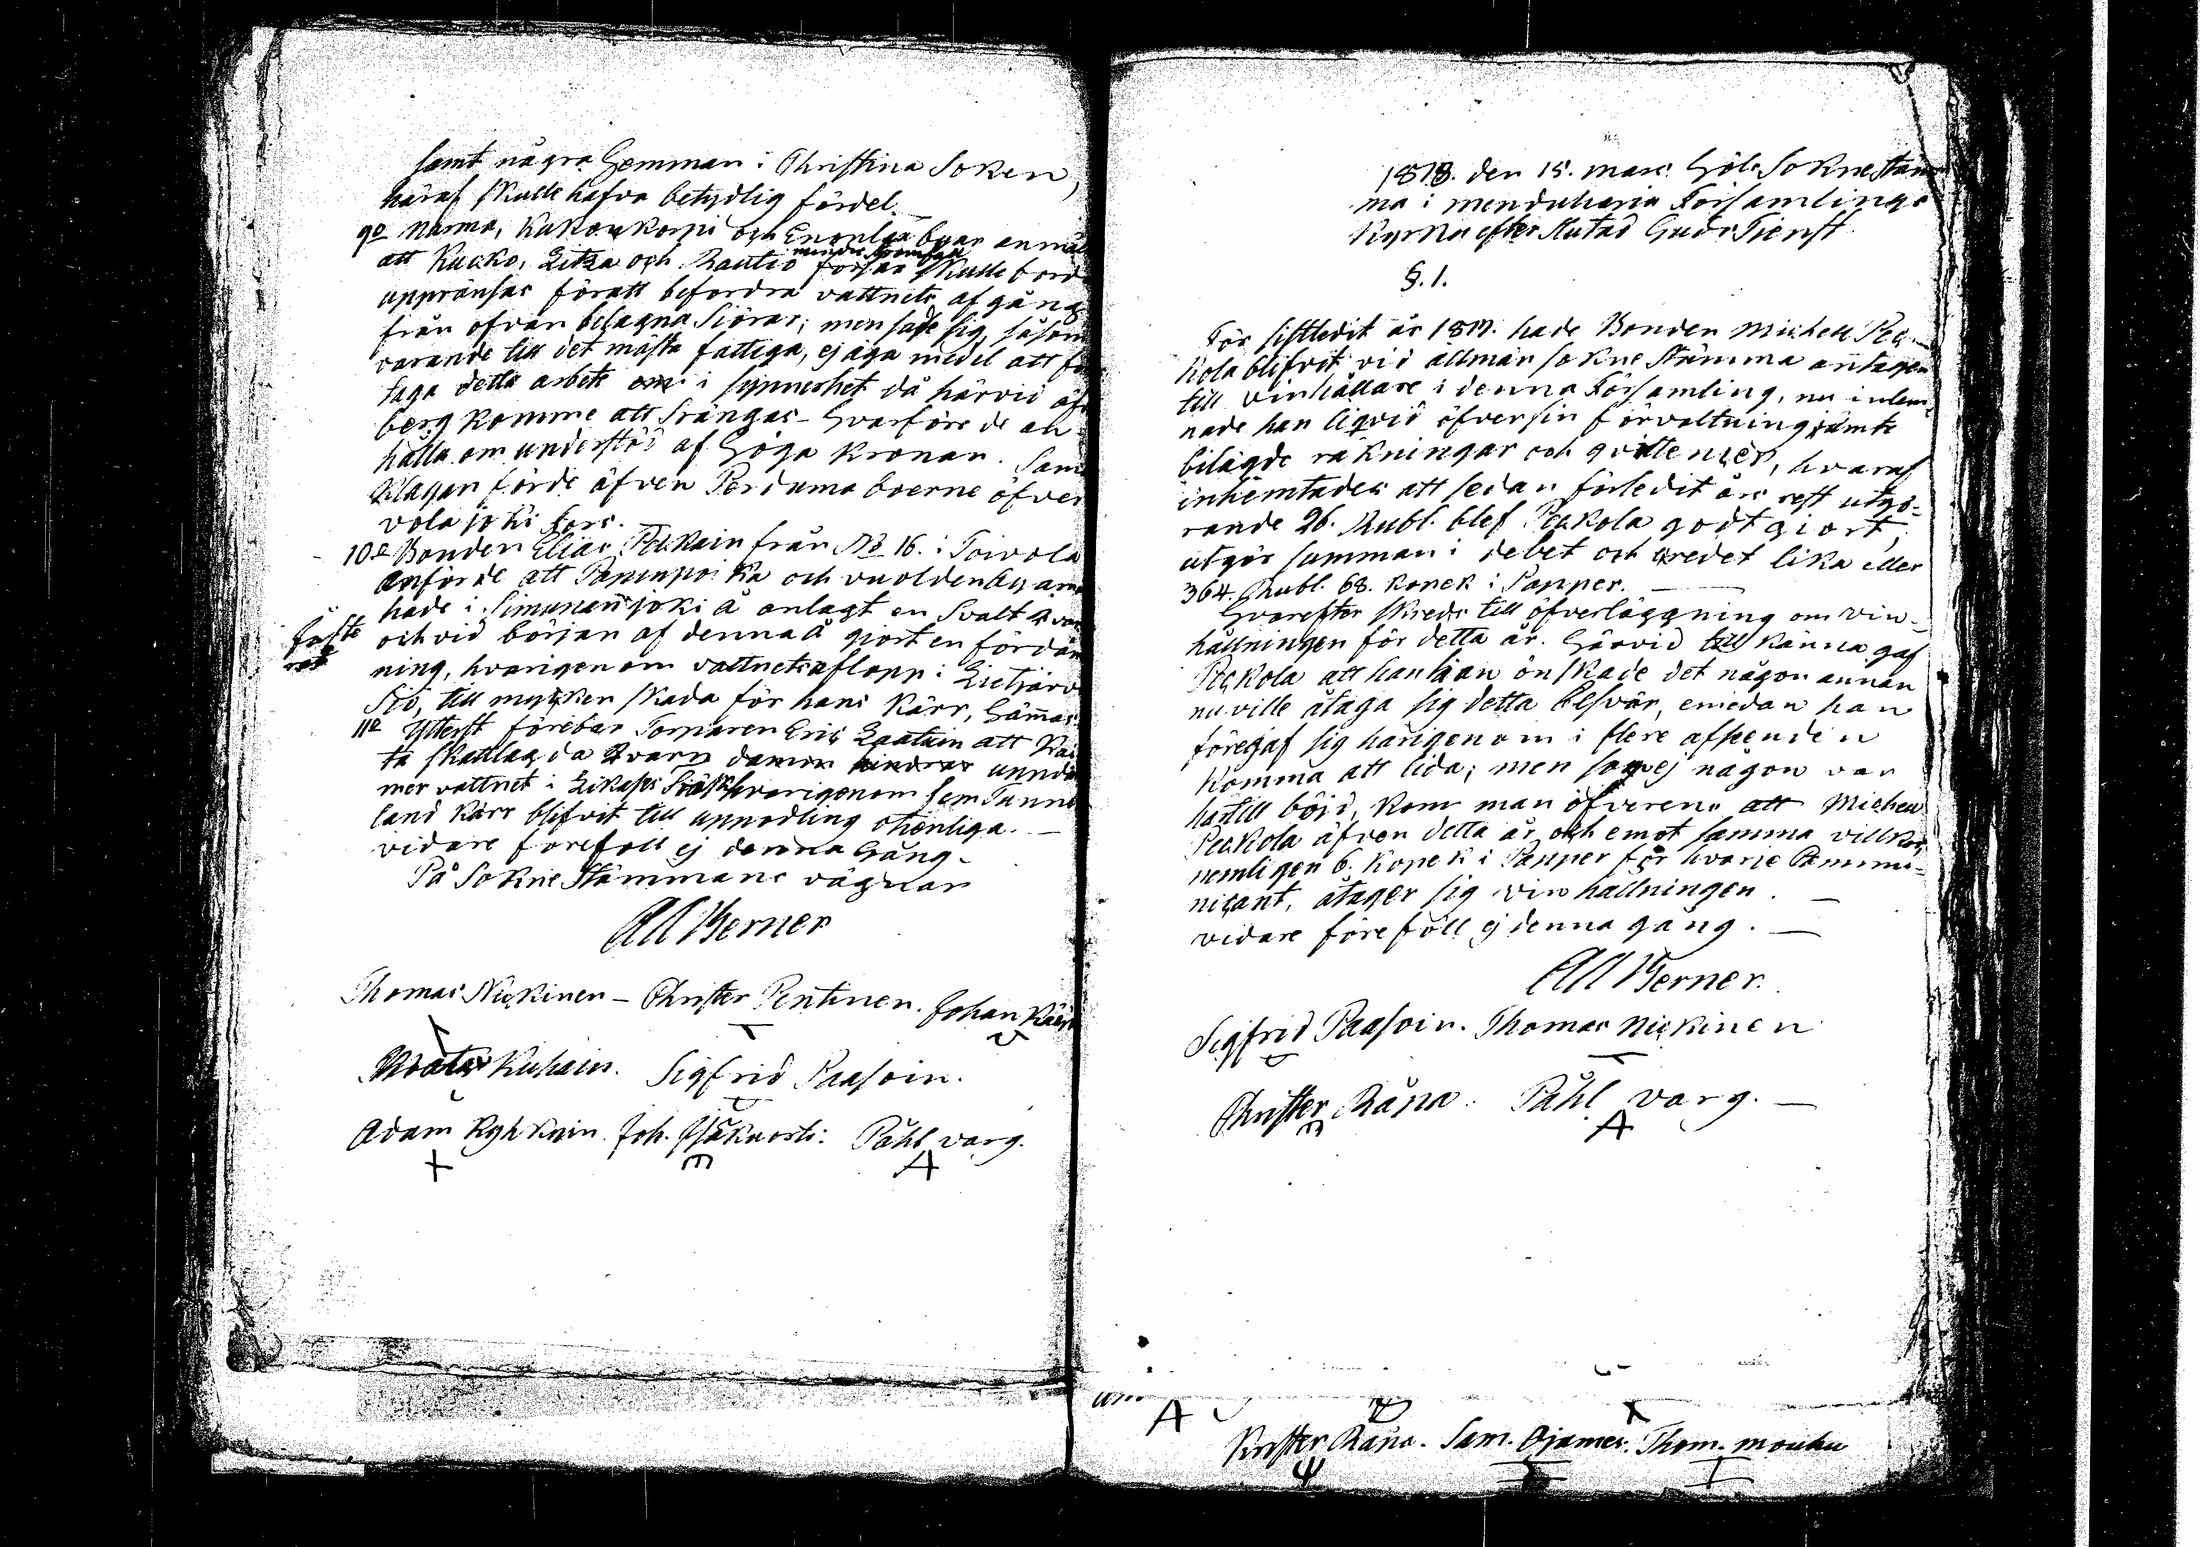 samt några Hemman i Christina Soken,
häraf skulle hafva betydlig fördel.
9o Narma, Kukonkorpi och Enonlax byar anmäl
att Kucko, Litza och Rautio forsar skulle bord
uppränsas föratt befordra vattnets afgång
från ofvan belagna Siöras; men sade sig, såsom
varande till det mästa fattiga, ej äga medel att
taga detta arbete i synnerhet då härvid
berg komme att srängas - Hvarföre de an-
hålla om understöd af Höga Kronan. Sam
klagan förde äfven Porduma boerne öfver
vola joki fors.
10o Bonden Elias Peukain från No 16. i Toivola
anförde att Papinpoika och
hade i Simunanjoki å anlagt en Svalt qvar
och vid början af denna å giort en fördäm
ning, hvarigenom vattnets aflopp i Lietjärv
Siö, till mycken skada för hans Kärr, hämas
11o Ytterst förebar Torparen Eric Laatuin att
ta skattlagda qvarn damm hindrar uppdä
mer vattnet i hvarigenom fem Tunne
land Kärr blifvit till uppodling otienliga. —
vidare forefoll ej denna Gång.
På SokneStämmans vägnar
Ad Berner
Thomas Nickinen - Christer Pentinen. Johan
Kuhain. Sigfrid Paasoin.
Adam Ryhkäin. Joh. Påhl varg.
1818. den 15. mars Höls Soknestäm
ma i mänduharju Församlings
Kyrka efter slutad Guds Tienst.
§. 1.
För sistledit år 1817. hade Bonden Michell Pec-
kola blifvit vid allmän sokne stämma antagen
till vinhållare i denna Församling, nu inlem-
nade han liqvid öfver sin förvaltning jämte
bilagde räkningar och qvittenser, hvaraf
inhemtades att sedan förledit års rest utgö-
rande 26. Rubl. blef Peckola godtgiort,
utgör summan i debet och credet lika eller
364. Rubl. 68. kopek i Papper. —
Hvarefter skreds till öfverläggning om vin-
hållningen för detta år. Härvid till känna gaf
Peckola att han önskade det någon annan
nu ville åtaga sig detta besvär, emedan han
föregaf sig härigenom i flere afseenden
komma att lida; men som ej någon var
härtill böjd, kom man öfverens att Michell
Peckola äfven detta år och emot samma villkor
nemligen 6. kopek i Papper för hvarje Commu-
nicant, åtager sig vinhållningen. —
vidare föreföll ej denna gång. —
Ad Berner.
Sigfrid Paasoin. Thomas Nickinen
Christer Räna. Påhl varg. —
Krister Räna. Sam. Ojamer. Thom. mouhu